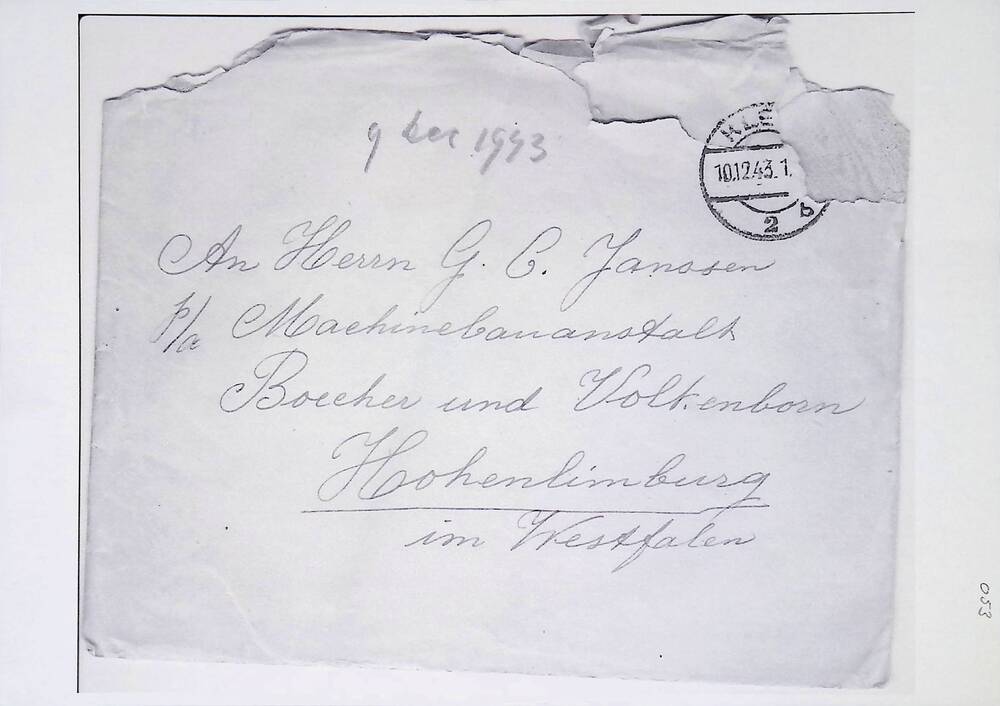 9 dec 1943
10.12.43.1
2 b
An Herrn G. C. Janssen
p/a Machinebauanstalt
Boecher und Volkenborn
Hohenlimburg
im Westfalen
053